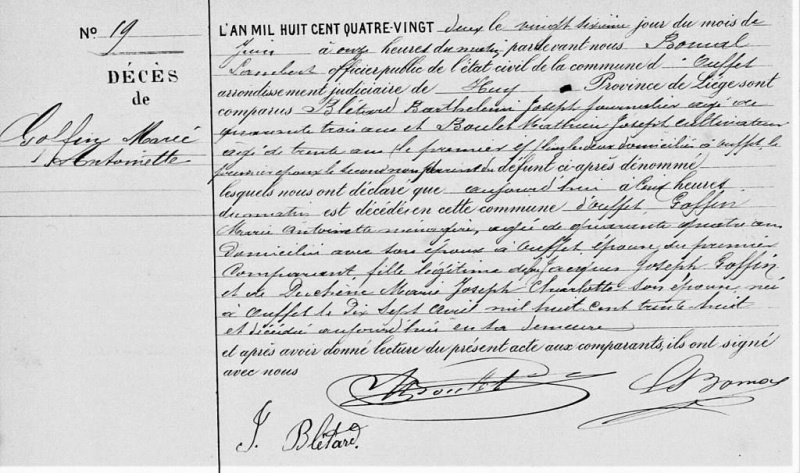 No 19
DÉCÈS
de
Goffin Marie
Antoinette
L'AN MIL HUIT CENT QUATRE-VINGT deux le vingt sixième jour du mois de
Juin à onze heures du matin pardevant nous Bonmal
Lambert officier public de l'état civil de la commune d'Ouffet
arrondissement judiciaire de Huy Province de Liège sont
comparus Blétard Barthelemi Joseph journalier agé de
quarante trois ans et Boulet Mathieu Joseph cultivateur
agé de trente ans le premier et les deux domiciliés à Ouffet le
premier époux le second non parent du défunt ci-après dénommé
lesquels nous ont déclaré que aujourd'hui à heures
du matin est décédée en cette commune d'Ouffet Goffin
Marie Antoinette ménagère, agée de quarante quatre ans
Domiciliée avec son époux à Ouffet, épouse du premier
Comparant fille légitime de Jacques Joseph Goffin
et de Duchêne Marie Joseph Charlotte son épouse, née
à Ouffet le Dix Sept Avril mil huit Cent trente huit
et décédée aujourd'hui en sa demeure
et après avoir donné lecture du présent acte aux comparants, ils ont signé
avec nous
J. Blétard